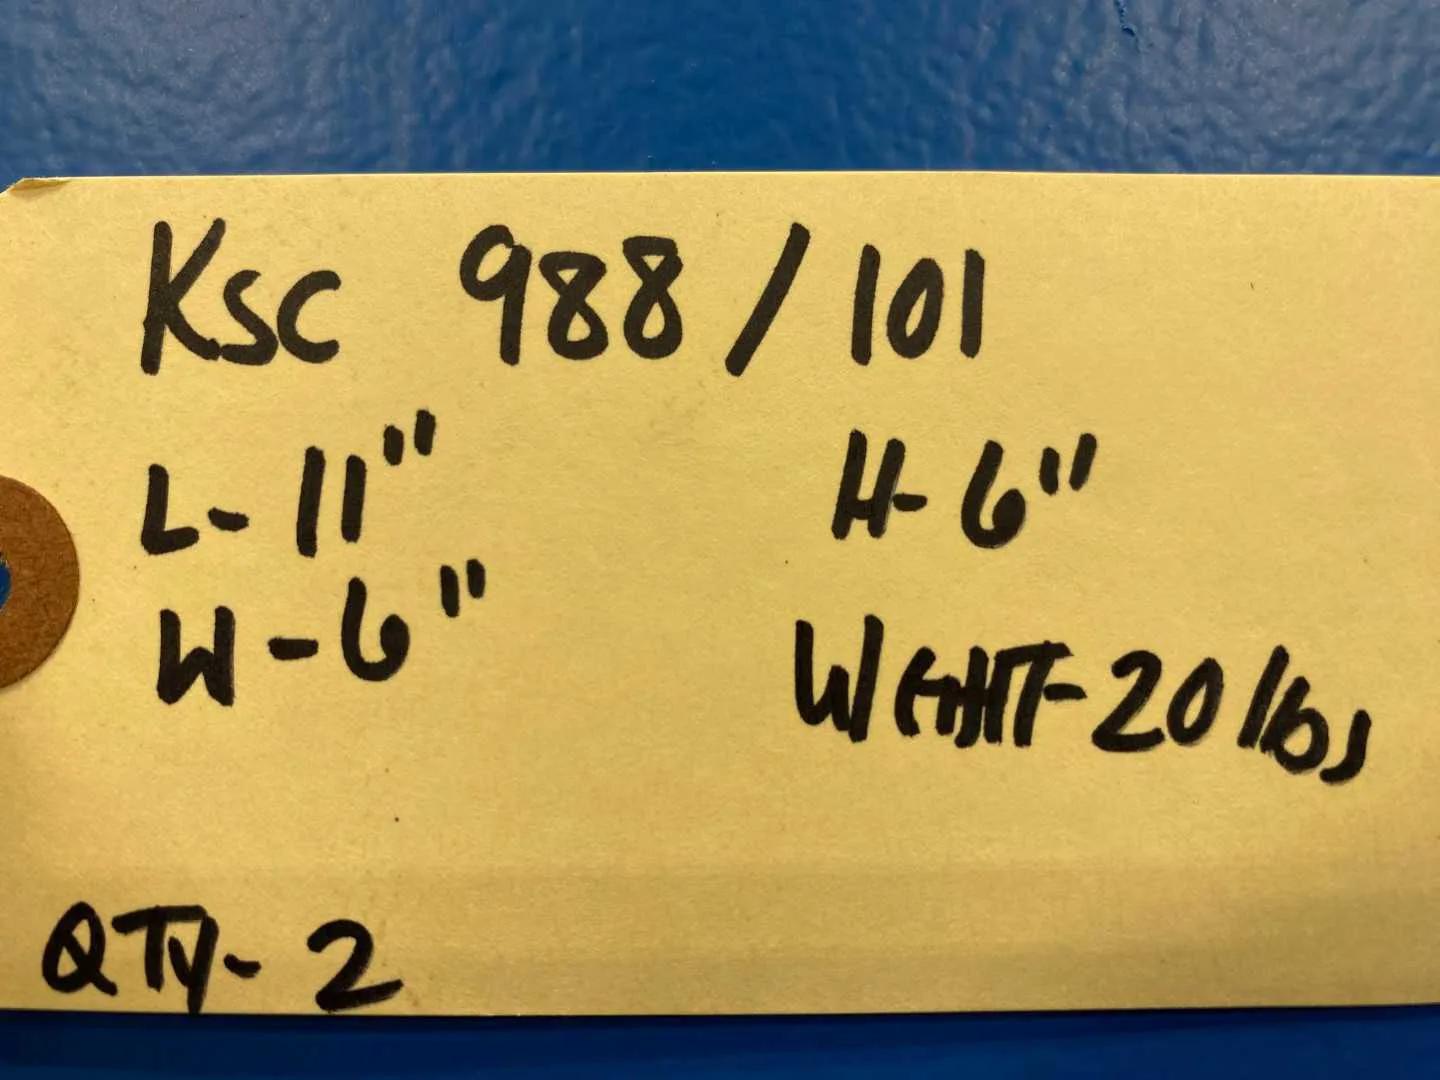 KSC 988/101
L-11" H-6"
W-6" WEGHT-20 lbs
QTY-2